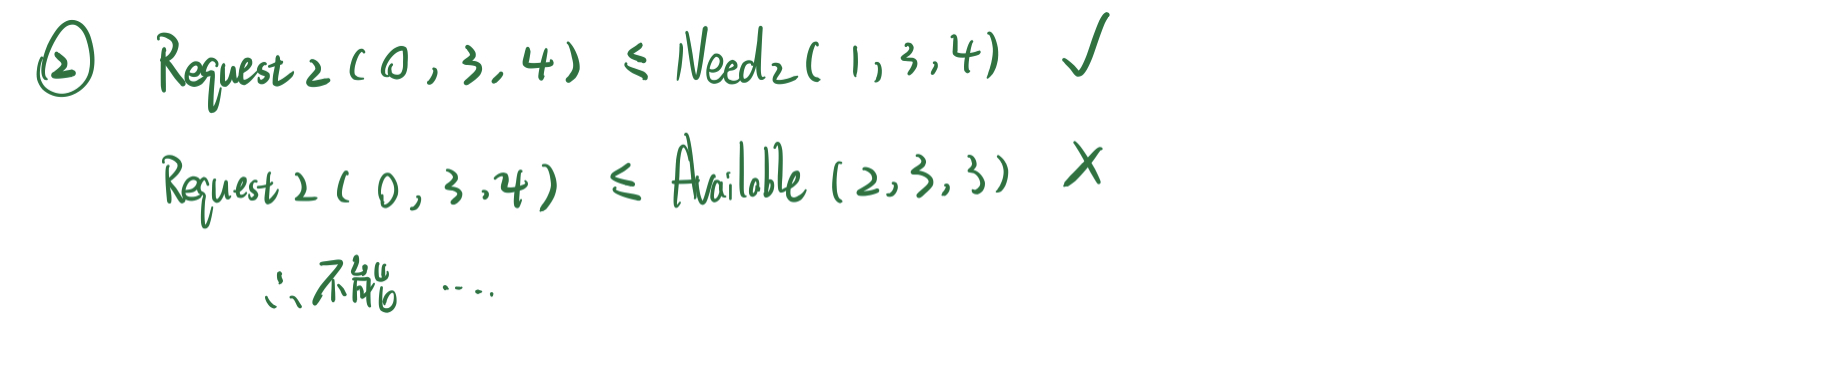 ② Request2 (0, 3, 4) ≤ Need2 (1, 3, 4) ✓
Request2 (0, 3, 4) ≤ Available (2, 3, 3) ✗
∴ 不能 ……